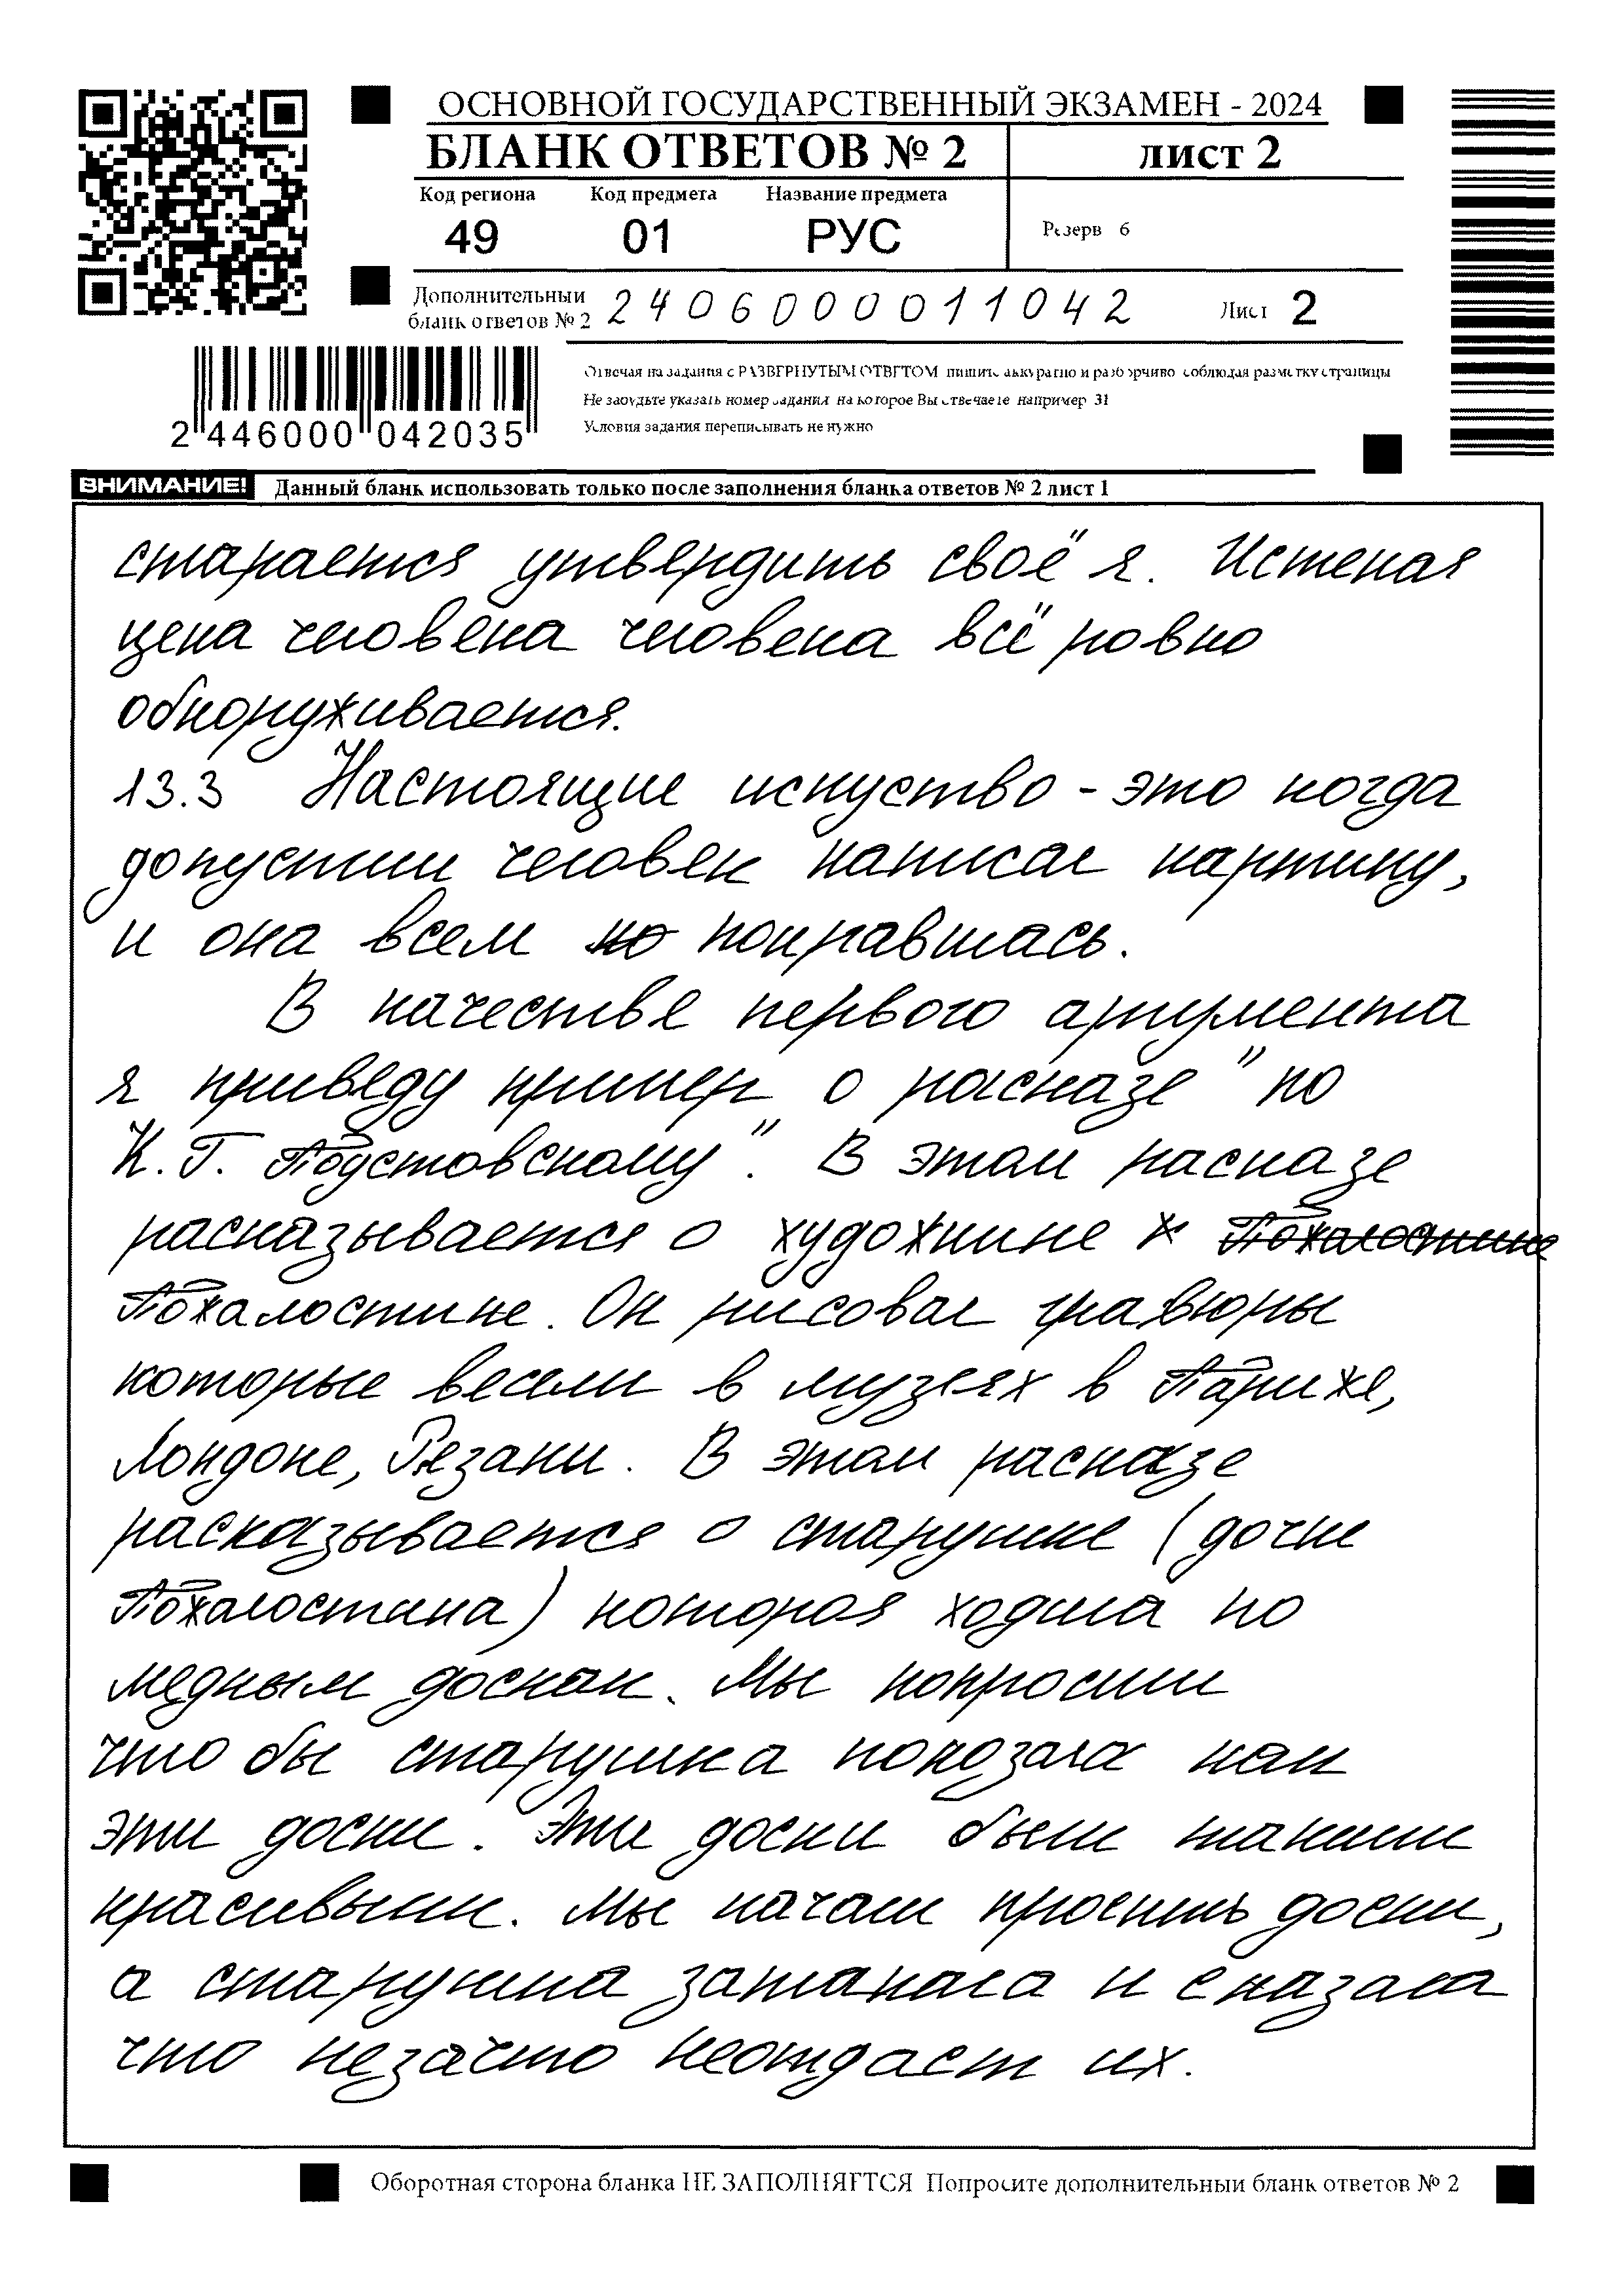 ОСНОВНОЙ ГОСУДАРСТВЕННЫЙ ЭКЗАМЕН - 2024
БЛАНК ОТВЕТОВ № 2 лист 2
Код региона Код предмета Название предмета
49 01 РУС Резерв 6
Дополнительный бланк ответов № 2 2406000011042 Лист 2
Отвечая на задания с РАЗВЕРНУТЫМ ОТВЕТОМ пишите аккуратно и разборчиво соблюдая разметку страницы
Не забудьте указать номер задания на которое Вы отвечаете например 31
Условия задания переписывать не нужно
2 446000 042035
ВНИМАНИЕ! Данный бланк использовать только после заполнения бланка ответов № 2 лист 1
старается утвердить своё я. Истеная
цена человека человека всё ровно
обноруживается.
13.3 Настоящие искуство - это когда
допустим человек написал картину,
и она всем понравилась.
В качестве первого аргумента
я приведу пример о расказе "по
К.Г. Подстовскому". В этом расказе
расказывается о художнике
Пожалостине. Он рисовал гравюры
которые весели в музеях в Париже,
Лондоне, Рязани. В этом расказе
расказывается о старушке (дочке
Пожалостина) которая ходила по
медным доскам. Мы попросили
что бы старушка покозала нам
эти доски. Эти доски были такими
красивыми. Мы начали просить доски,
а старушка затакала и сказала
что незачто неотдаст их.
Оборотная сторона бланка НЕ ЗАПОЛНЯЕТСЯ Попросите дополнительный бланк ответов № 2